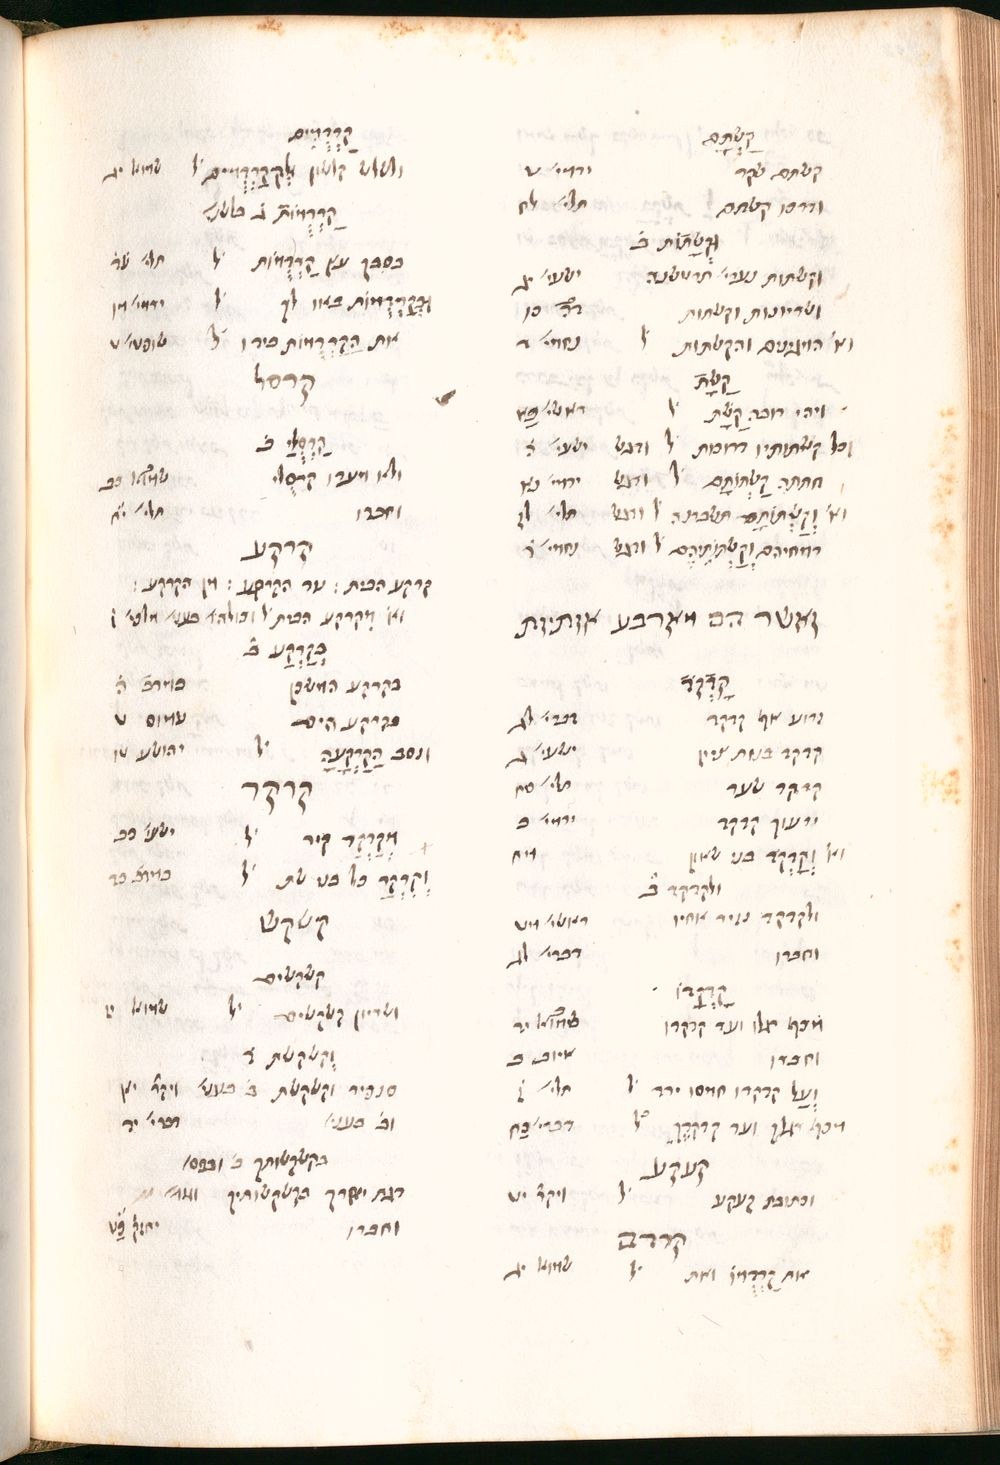 קַשְׁתָּם
קשתם שקר ירמי׳ ט
ודרכו קשתם תלי׳ לז
וקשתות ב׳
וקשתות נערי׳ תרטשנה ישעי׳ יג
ושריונות וקשתות כו
וא׳ המגנים והקשתות ל׳ נחמי׳ ד
קַשָּׁת
ויהי רובה קַשָּׁת ל׳ ראשי׳ כא
וכל קשתותיו דרוכות ל׳ ודגש ישעי׳ ה
חתתה קַשְּׁתוֹתָם ל׳ ודגש ירמי׳ נא
וא׳ וְקַשְּׁתוֹתָם תשברנה ל׳ ודגש תלי׳ לז
רמחיהם וְקַשְּׁתֹתֵיהֶם ל׳ ודגש נחמי׳ ד
ואשר הם מארבע אותיות
קָדְקֹד
זרוע אף קדקד דברי׳ לג
קדקד בנות ציון ישעי׳ ג
קדקד שער תלי׳ סח
ירעוך קדקד ירמי׳ ב
וא׳ וְקָדְקֹד בני שאון מח
ולקדקד ב׳
ולקדקד נזיר אחיו ראשי׳ מט
וחברו דברי׳ לג
קָדְקֳדוֹ
מכף רגלו ועד קדקדו יד
וחברו איוב ב
וְעַל קדקדו חמסו ירד ל׳ תלי׳ ז
מכף רגלך ועד קדקדך ל׳ דברי׳ כח
קעקע
וכתובת קעקע ל׳ ויקר׳ יט
קרדם
את קַרְדֻּמּוֹ ואת ל׳ שמוא׳ יג
קַרְדֻּמִּים
ולשלש קלשון וּלְהַקַּרְדֻּמִּים ל׳ שמוא׳ יג
קַרְדֻּמּוֹת ג׳
בסבך עץ קַרְדֻּמּוֹת ל׳ תלי׳ עד
וּבְקַרְדֻּמּוֹת באו לך ל׳ ירמי׳ מו
את הַקַּרְדֻּמּוֹת בידו ל׳ שופטי׳ ט
קרסל
קַרְסֻלָּי ב׳
ולא מעדו קרסלי שמוא׳ כב
וחברו תלי׳ יח
קרקע
קרקע הבית : עד הקרקע : מן הקרקע :
וא׳ מִקרקע הבית ל׳
בְּקַרְקַע ב׳
בקרקע המשכן במדב׳ ה
בקרקע הים עמוס ט
ונסב הַקַּרְקָעָה ל׳ יהושע טו
קרקר
מְקַרְקַר קיר ל׳ ישעי׳ כב
וְקַרְקַר כל בני שת ל׳ במדב׳ כד
קשקש
קשקשים
ושריון קשקשים ל׳ שמוא׳ יז
וקשקשת ד׳
סנפיר וקשקשת ב׳ בעני׳ ויקר׳ יא
וב׳ בעני׳ דברי׳ יד
בקשקשותך ב׳ ובפסו׳
דגת יאריך בקשקשותיך
וחברו יחזק׳ כט